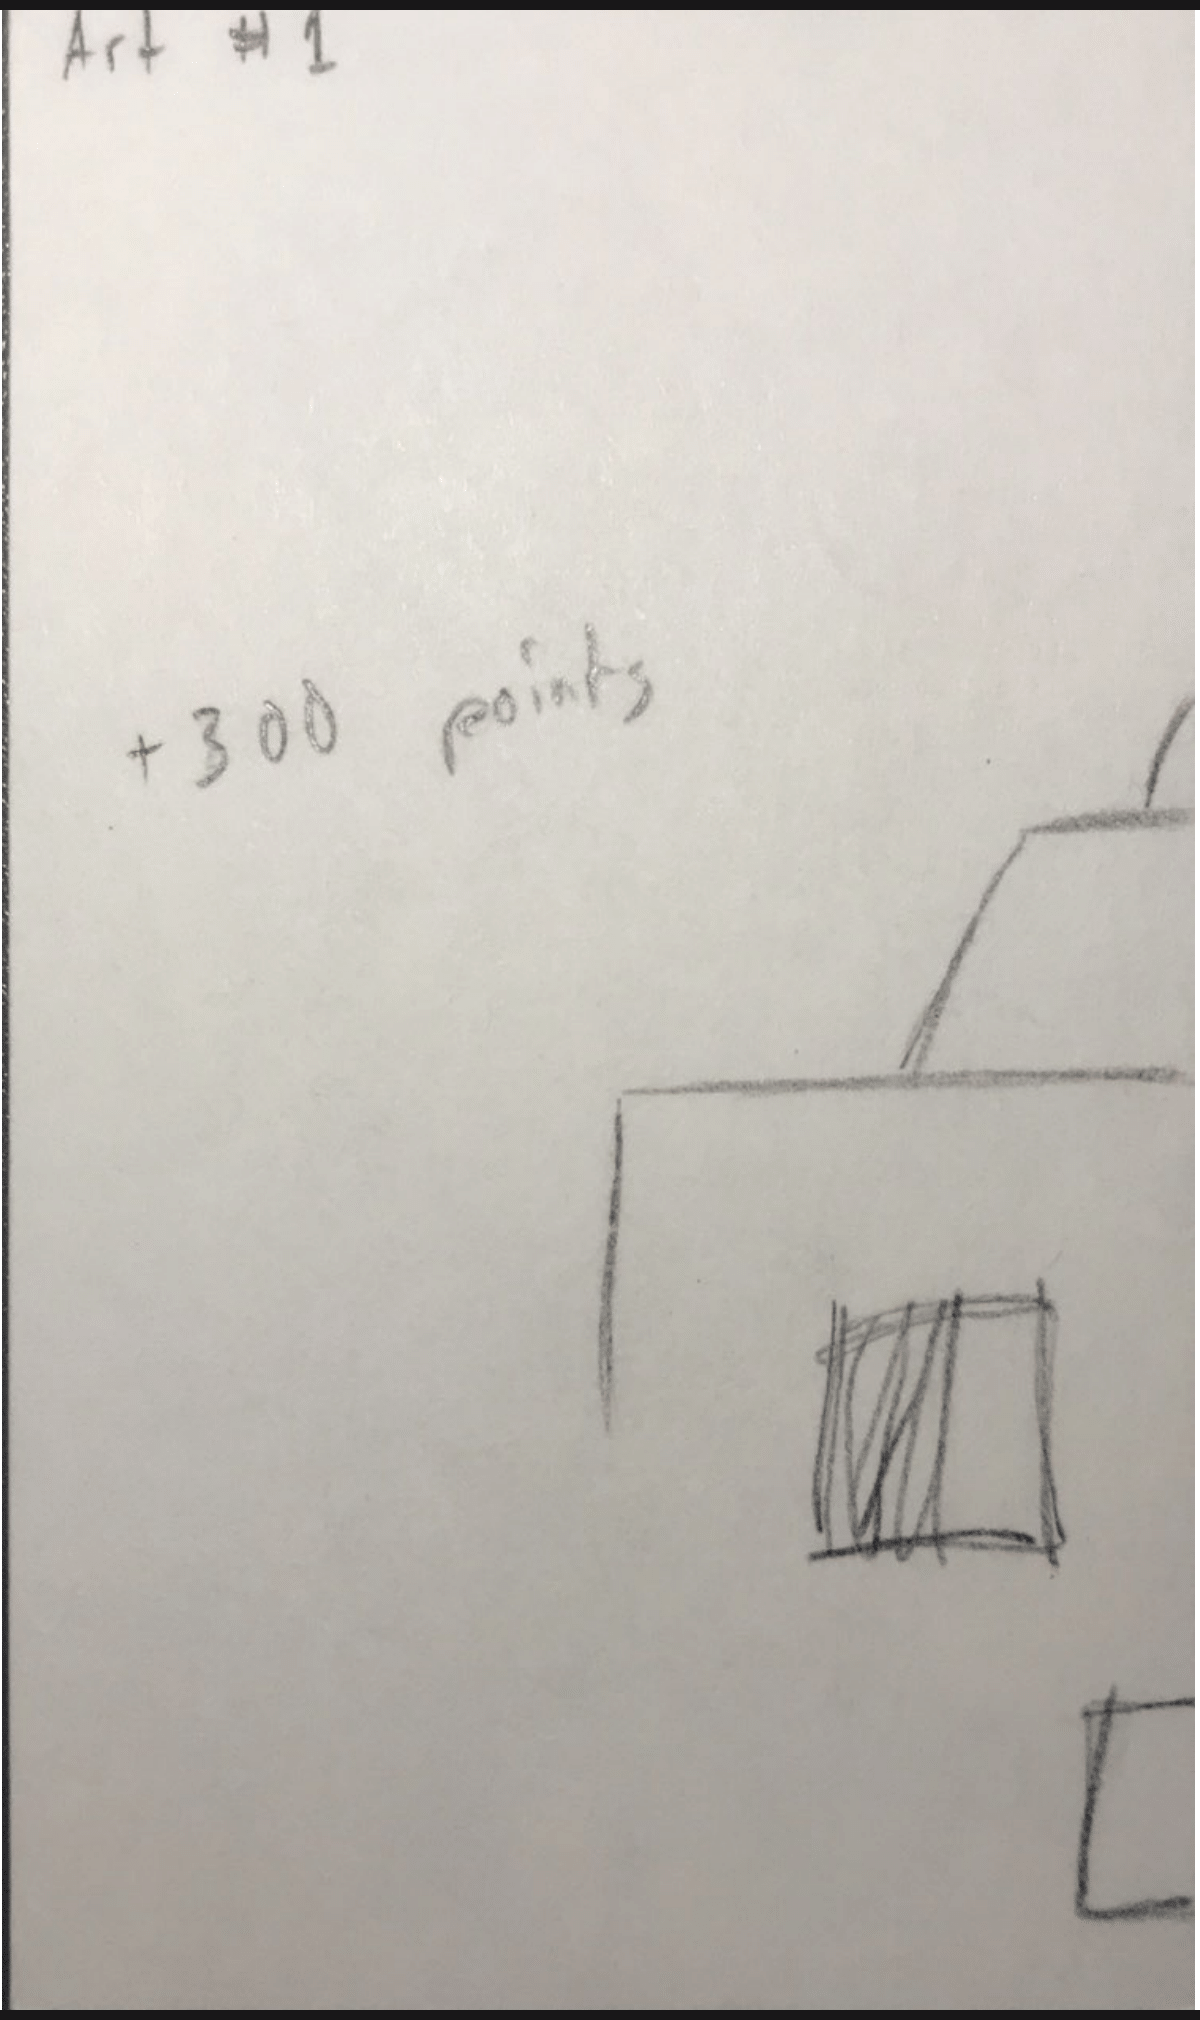 Art #1
+300 points